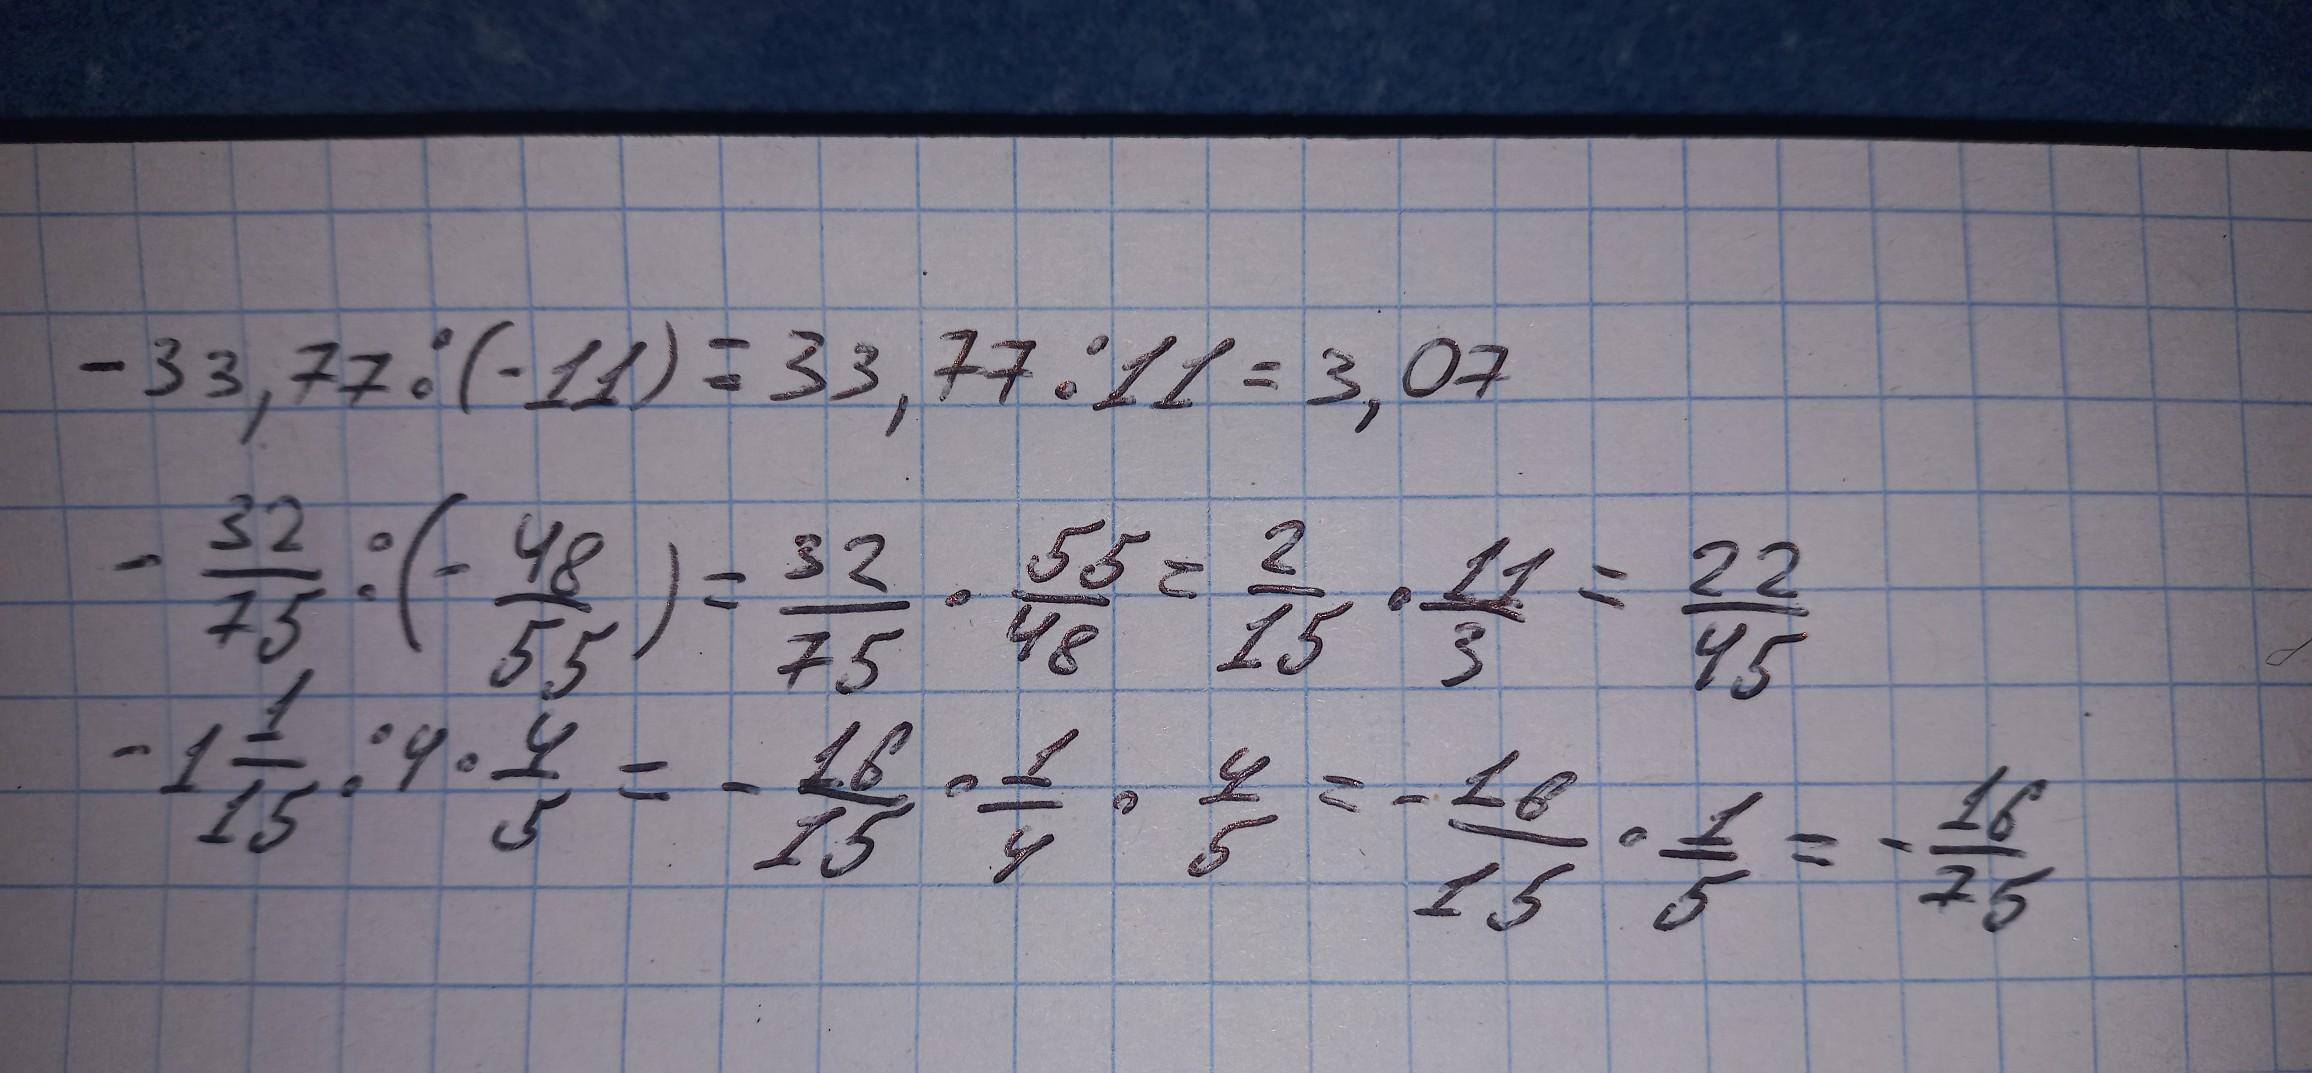 -33,77:(-11)=33,77:11=3,07
-32/75:(-48/55)=32/75·55/48=2/15·11/3=22/45
-1 1/15:4·4/5=-16/15·1/4·4/5=-16/15·1/5=-16/75